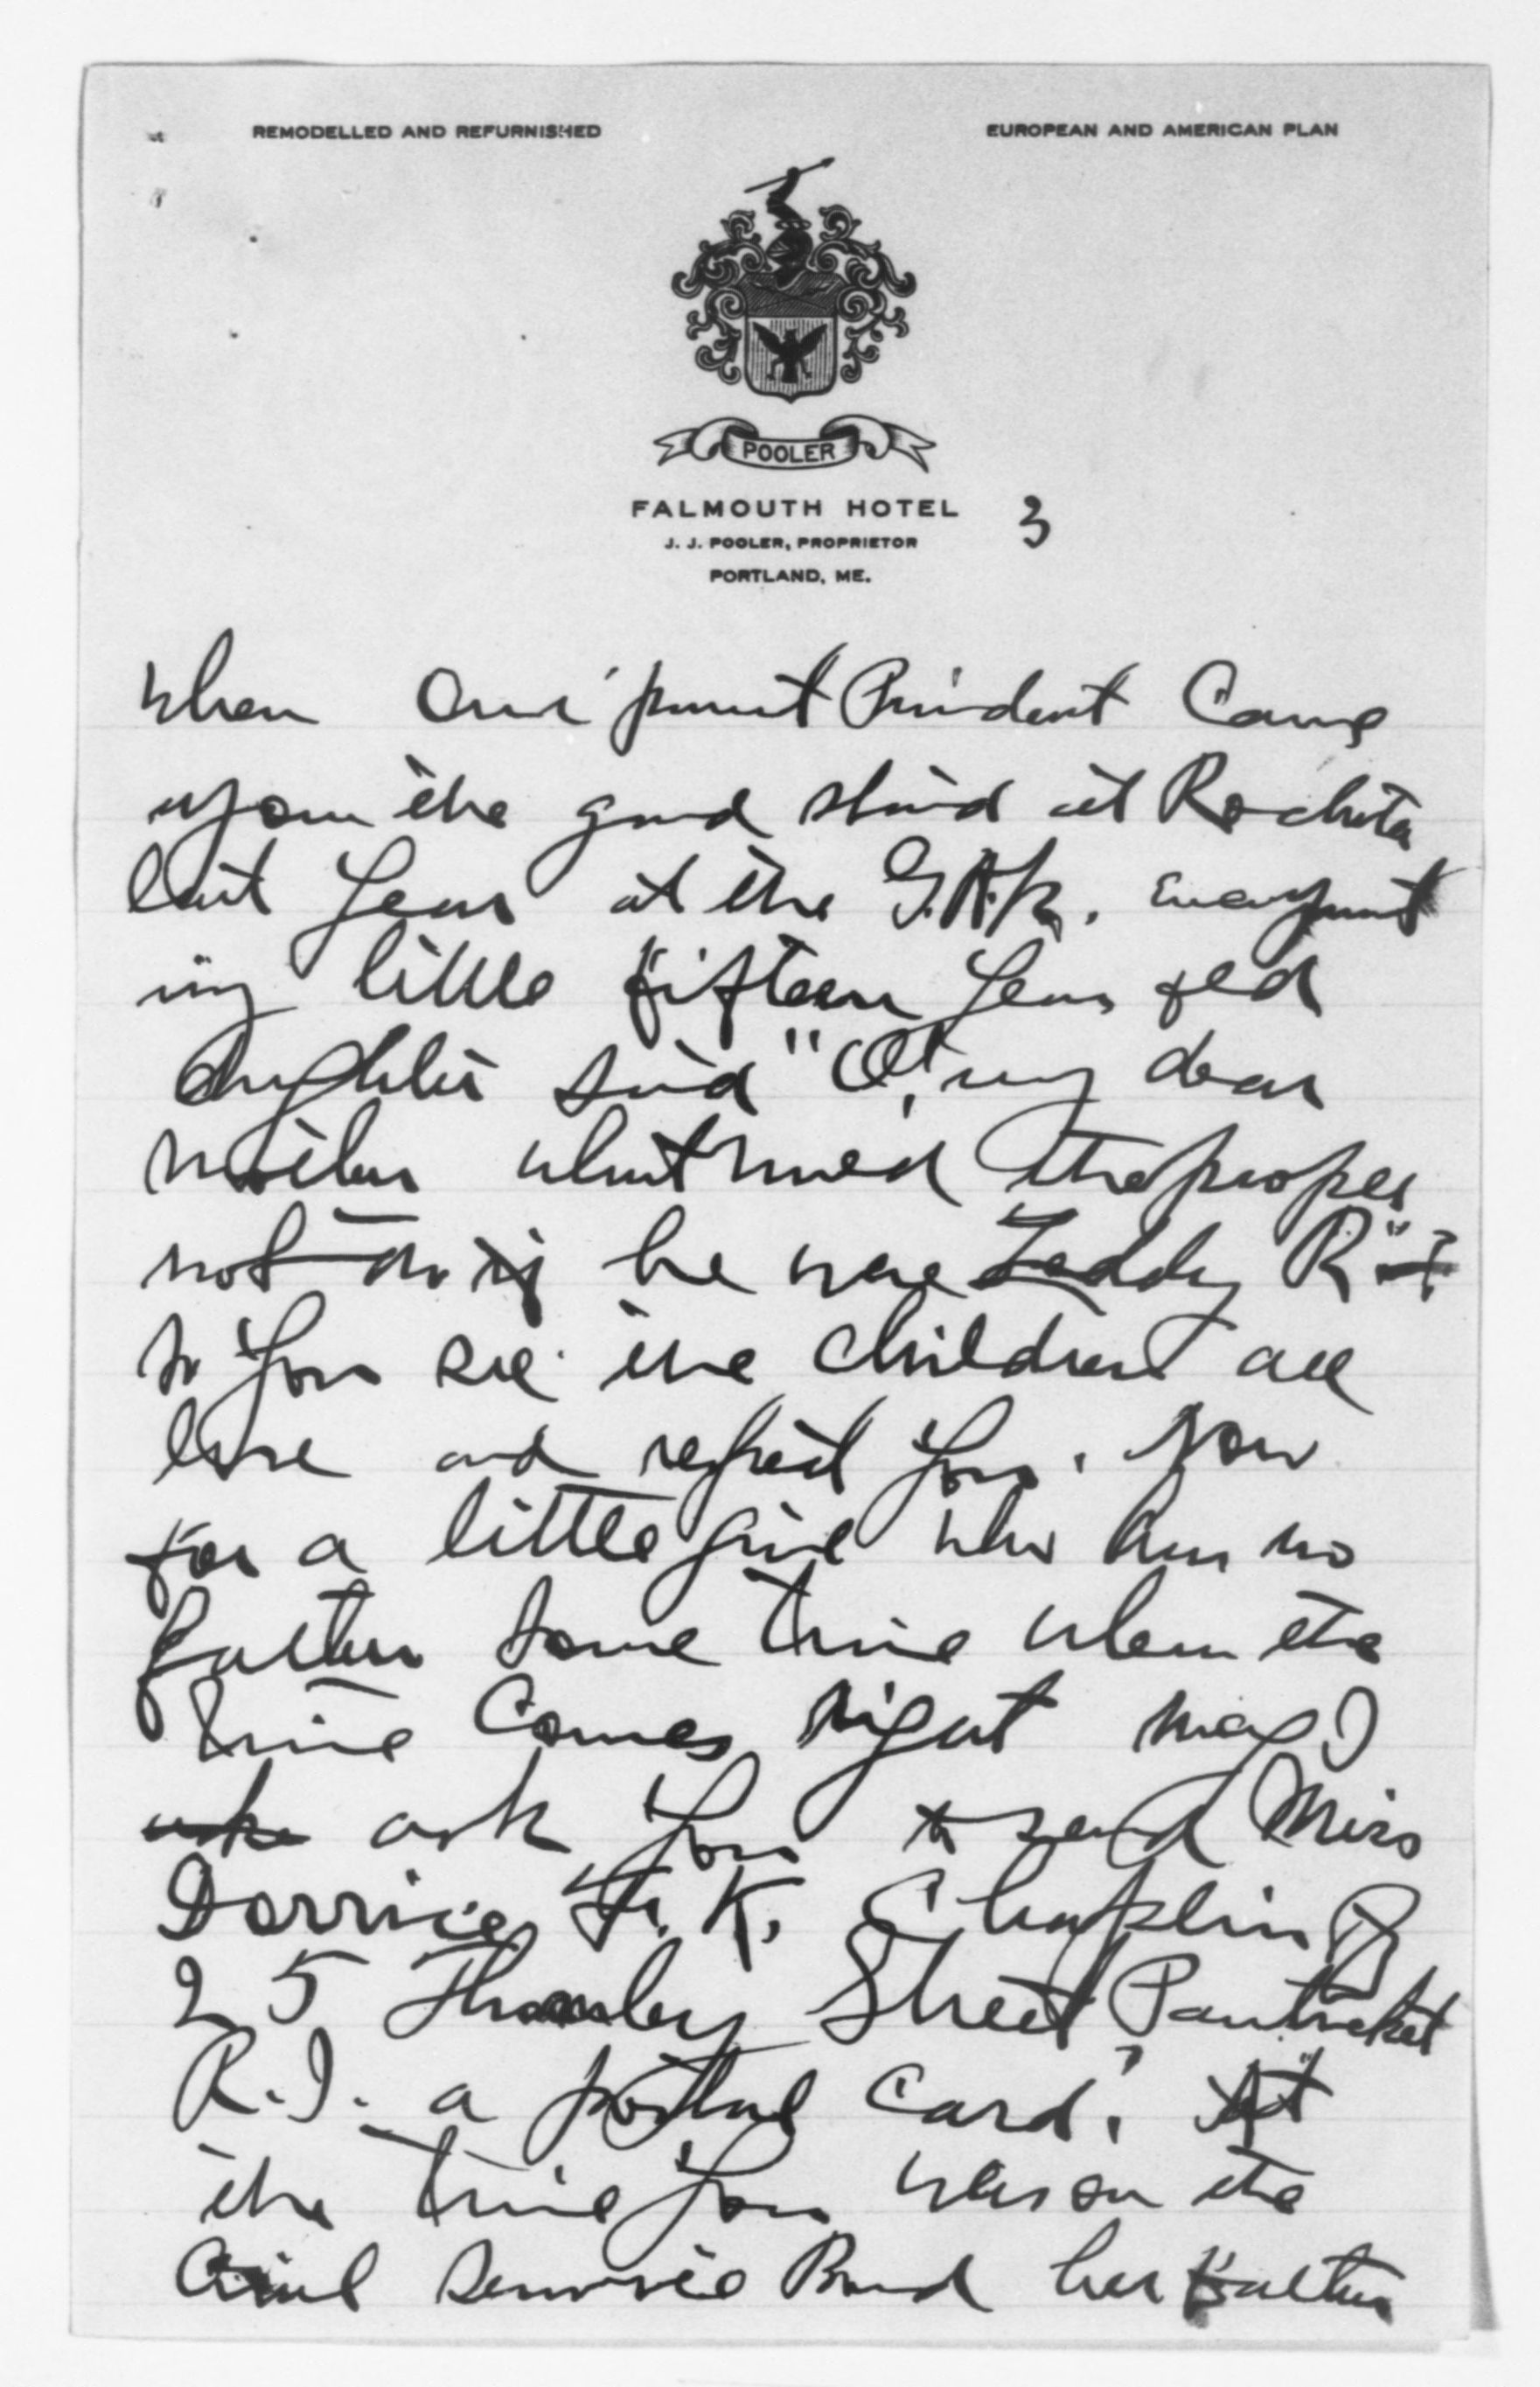 REMODELLED AND REFURNISHED
EUROPEAN AND AMERICAN PLAN
POOLER
FALMOUTH HOTEL
3
J. J. POOLER, PROPRIETOR
PORTLAND, ME.
when our present President Came
upon the grand stand at Rochester
last year at the G.A.R. encampment
my little fifteen years old
daughter said "O! my dear
mother what would the people
not do if he were Teddy R"
so you see the children all
love and respect you. Now
for a little girl who has no
father some time when the
time comes right may I
ask you to send Miss
Dorrice F. K. Chaplin
25 Thornley Street Pawtucket
R.I. a postal card. At
the time you was on the
Civil Service Board her father